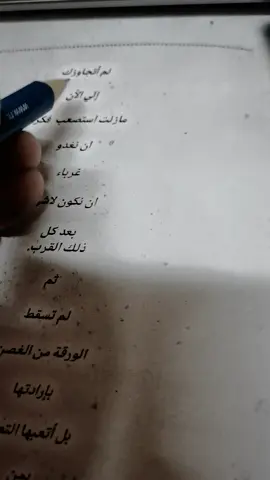 لم أتجاوزك
إلي الآن
مازلت استصعب
ان نغدو
غرباء
ان نكون
بعد كل
ذلك القرب.
ثم
لم تسقط
الورقة من الغصن
بإرادتها
بل أتعبها